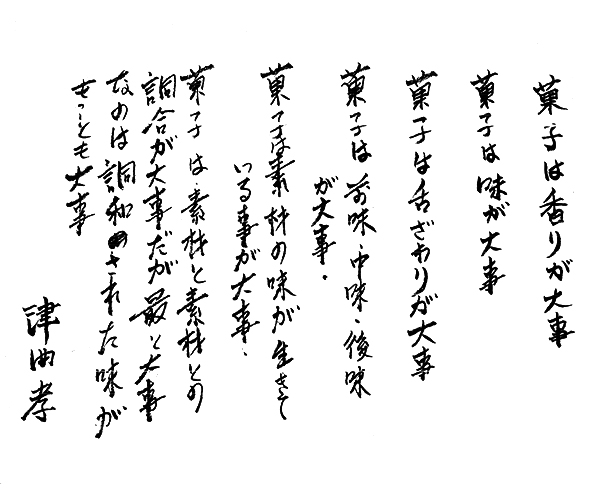 菓子は香りが大事
菓子は味が大事
菓子は舌ざわりが大事
菓子は前味・中味・後味
が大事・
菓子は素材の味が生きて
いる事が大事・
菓子は素材と素材との
調合が大事だが最と大事
なのは調和された味が
もっとも大事
津曲孝